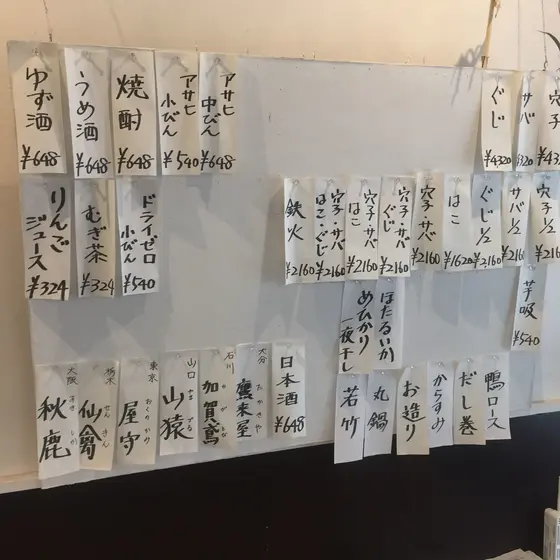 穴子 ¥432
サバ ¥4320
ぐじ ¥4320
アサヒ 中びん ¥648
アサヒ 小びん ¥540
焼酎 ¥648
うめ酒 ¥648
ゆず酒 ¥648
穴子 1/2 ¥216
サバ 1/2 ¥2160
ぐじ 1/2 ¥2160
はこ ¥1620
穴子・サバ ¥2160
穴子・サバ ぐじ ¥2160
穴子・サバ はこ ¥2160
穴子・サバ はこ・ぐじ ¥2160
鉄火 ¥2160
ドライゼロ 小びん ¥540
むぎ茶 ¥324
りんごジュース ¥324
芋吸 ¥540
ほたるいか
めひかり 一夜干し
鴨ロース
だし巻
からすみ
お造り
丸鍋
若竹
日本酒 ¥648
大分 鷹来屋 たかきや
石川 加賀鳶 かがとび
山口 山猿 やまざる
東京 屋守 おくのかみ
栃木 仙禽 せんきん
大阪 秋鹿 あきしか